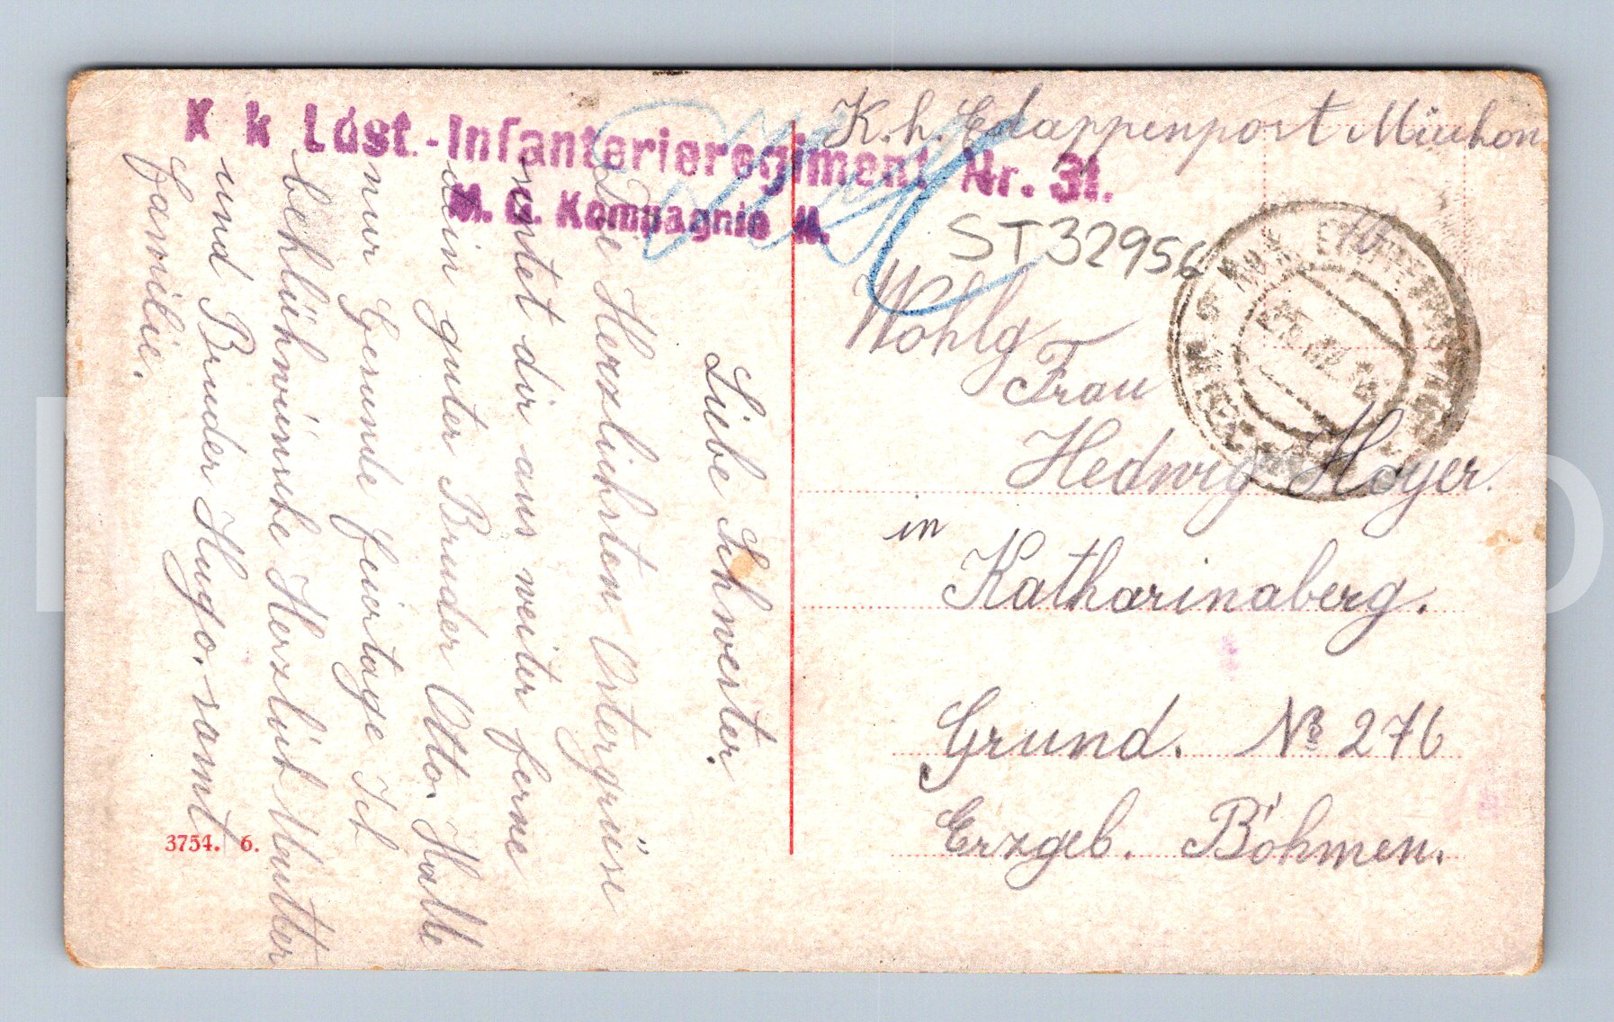 K k Ldst.-Infanterieregiment Nr. 31.
M. G. Kompagnie
K. k. Edappenpost
ST32956
Wohlg
Frau
Hedwig Hoyer.
in
Katharinaberg.
Grund. No 276
Erzgeb. Böhmen.
Liebe Schwester.
Die Herzlichsten Ostergrüse
sentet dir aus weiter ferne
dein guter Bruder Otto. Hallte
nur Gesunde feiertage Ich
beklühnwünsche Herzlich Mutter
und Bruder Hugo. samt
familie.
3754. 6.